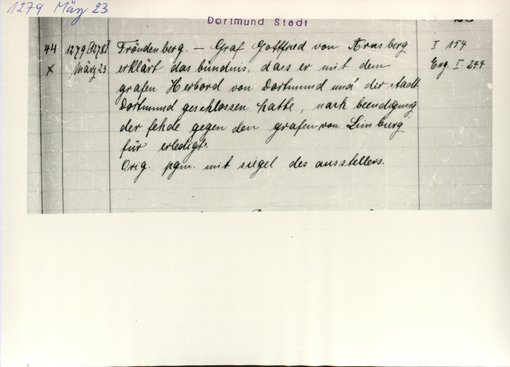 1279 März 23
Dortmund Stadt
44 1279 [1278] Fröndenberg. – Graf Gottfried von Arnsberg I 154
x März 23 erklärt das bündnis, dass er mit dem Erg I 244
grafen Herbord von Dortmund und der stadt
Dortmund geschlossen hatte, nach beendigung
der fehde gegen den grafen von Limburg
für erledigt.
Orig. pgm. mit siegel des ausstellers.